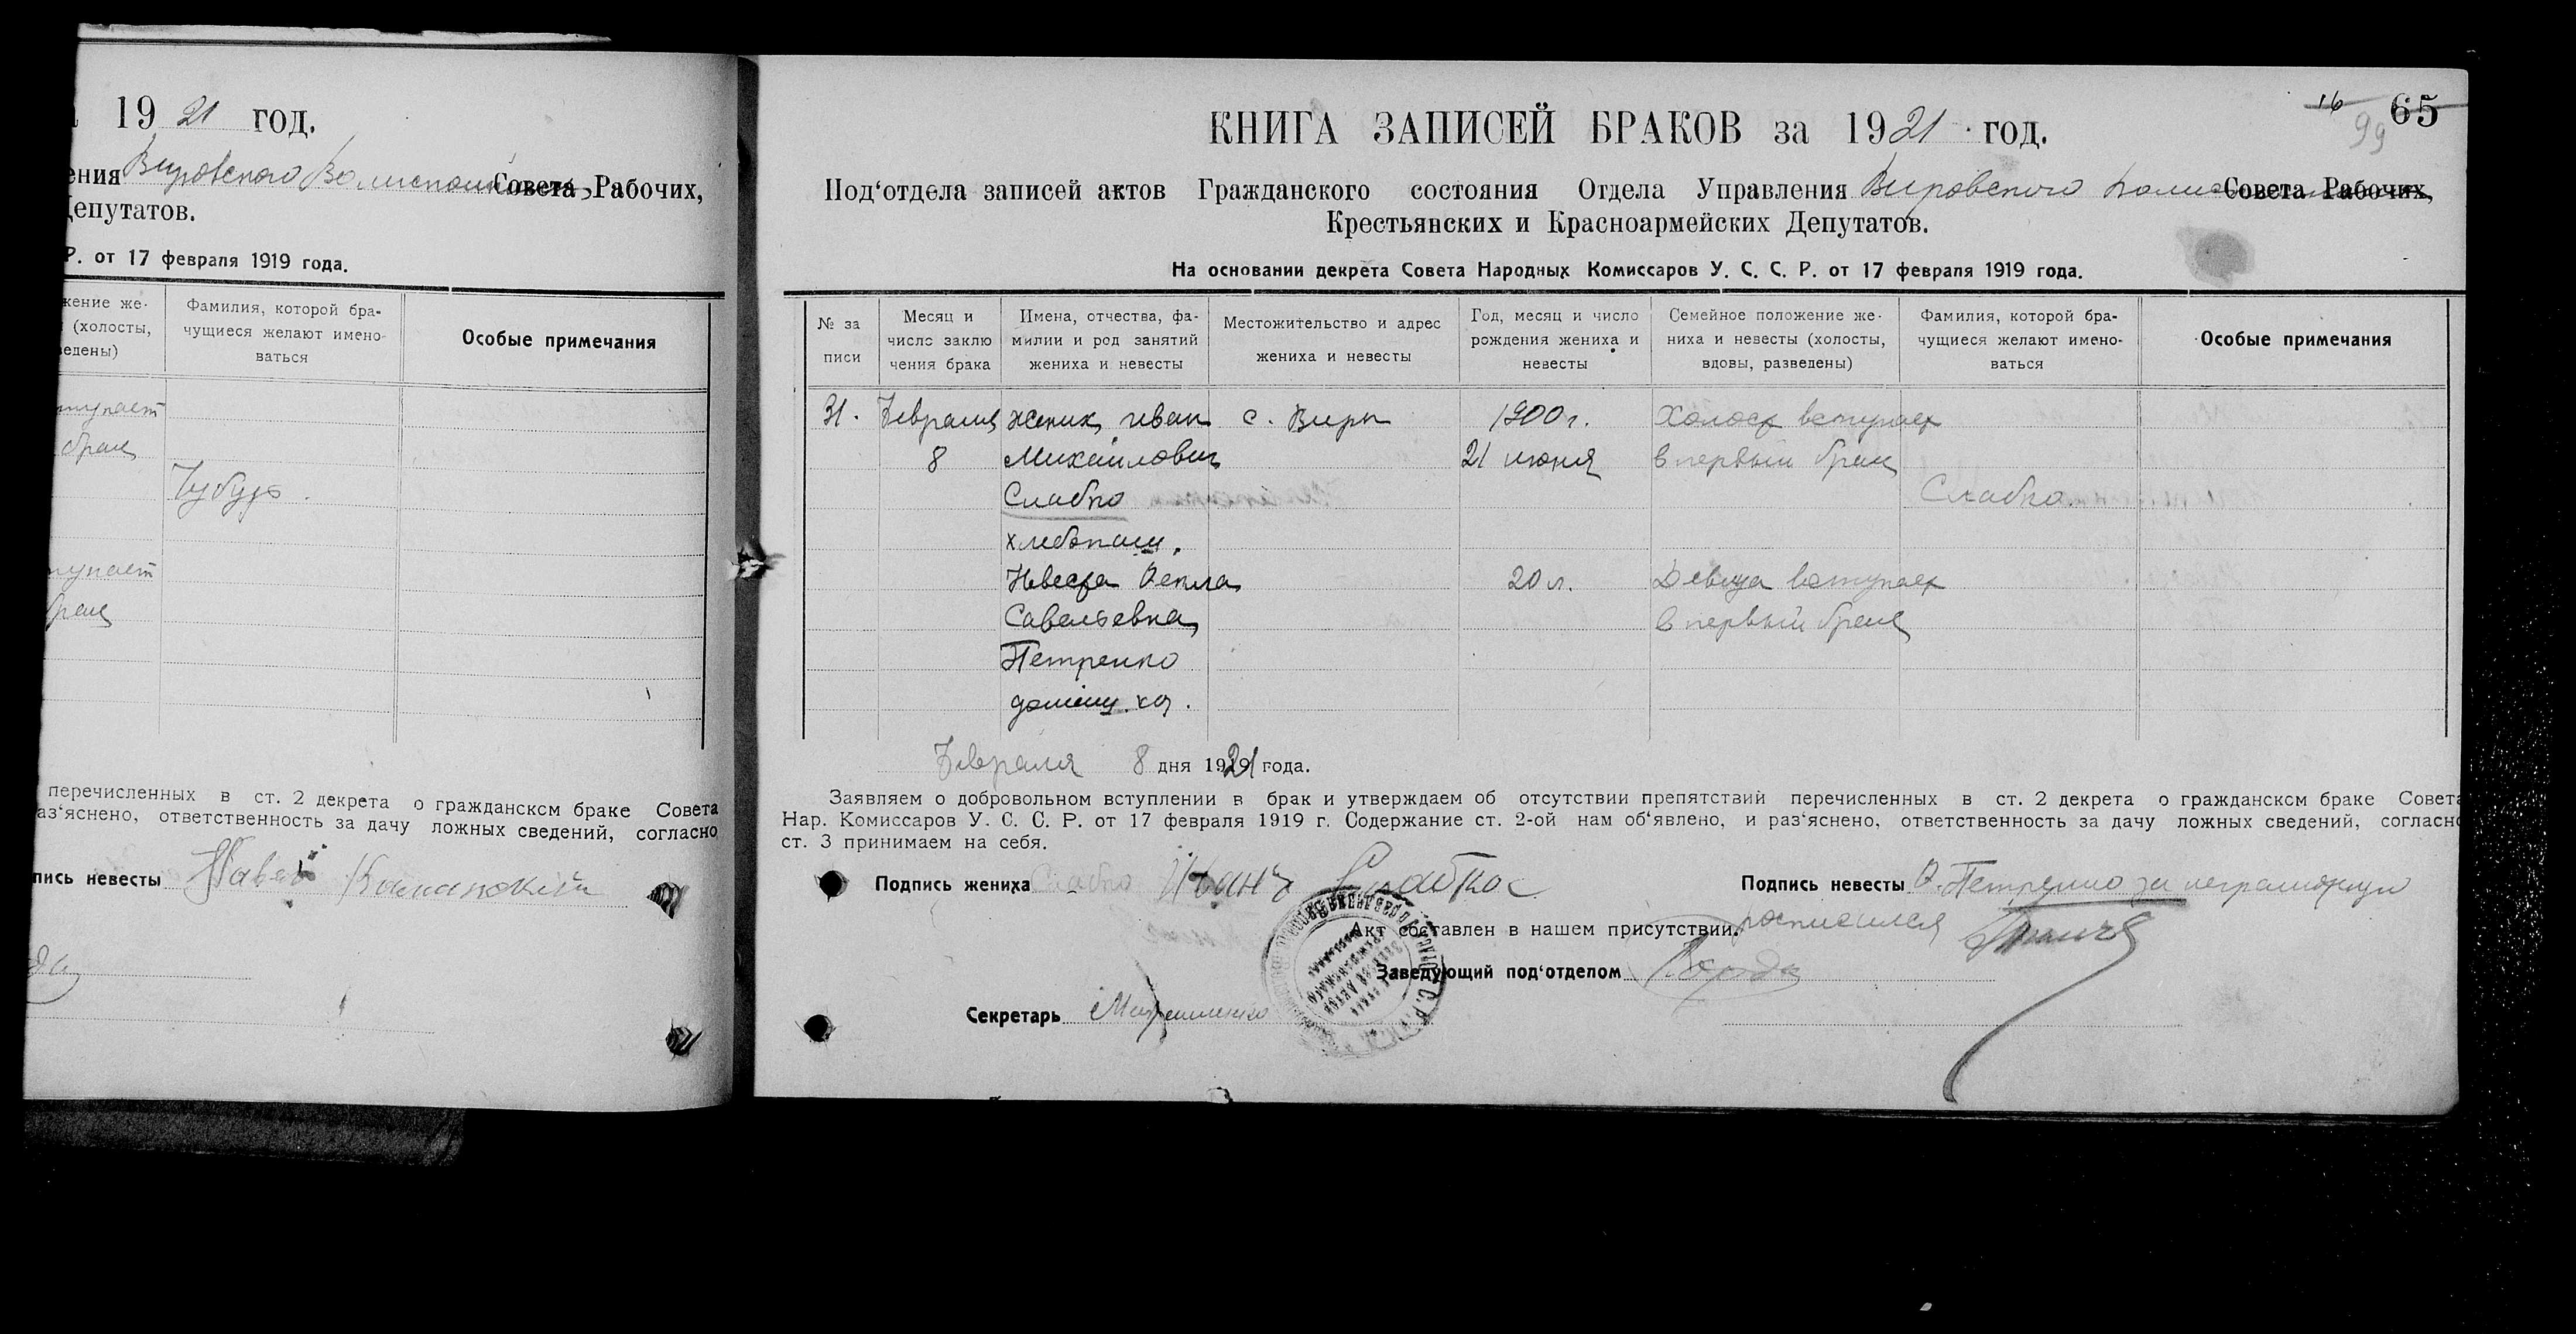 1921 год.
ения Вировского Волисполкома Совета Рабочих,
Депутатов.
Р. от 17 февраля 1919 года.
жение же-
(холосты,
ведены)
Фамилия, которой бра-
чущиеся желают имено-
ваться
Особые примечания
тупает
брак
Чубур.
тупает
брак
перечисленных в ст. 2 декрета о гражданском браке Совета
аз'яснено, ответственность за дачу ложных сведений, согласно
пись невесты
16 65
99
КНИГА ЗАПИСЕЙ БРАКОВ за 1921 год.
Под'отдела записей актов Гражданского состояния Отдела Управления Вировского Совета Рабочих,
Крестьянских и Красноармейских Депутатов.
На основании декрета Совета Народных Комиссаров У. С. С. Р. от 17 февраля 1919 года.
№ за
писи
Месяц и
число заклю
чения брака
Имена, отчества, фа-
милии и род занятий
жениха и невесты
Местожительство и адрес
жениха и невесты
Год, месяц и число
рождения жениха и
невесты
Семейное положение же-
ниха и невесты (холосты,
вдовы, разведены)
Фамилия, которой бра-
чущиеся желают имено-
ваться
Особые примечания
31. Февраля Жених Иван с. Виры 1900 г. Холост вступает
8 Михайлович 21 июня в первый брак
Слабко Слабко.
хлебопаш.
Невеста Фекла 20 л. Девица вступает
Савельевна в первый брак
Петренко
домашн. хоз.
Февраля 8 дня 1921 года.
Заявляем о добровольном вступлении в брак и утверждаем об отсутствии препятствий перечисленных в ст. 2 декрета о гражданском браке Совета
Нар. Комиссаров У. С. С. Р. от 17 февраля 1919 г. Содержание ст. 2-ой нам об'явлено, и раз'яснено, ответственность за дачу ложных сведений, согласно
ст. 3 принимаем на себя.
Подпись жениха Слабко Иванъ Слабко
Подпись невесты Ф. Петренко за неграмотную
росписался
Акт составлен в нашем присутствии.
Заведующий под'отделом
Секретарь